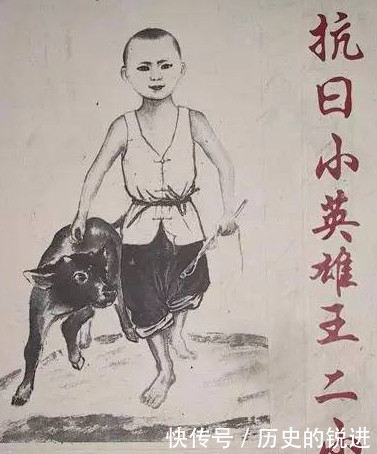 抗日小英雄王二小
快传号 / 历史的锐进